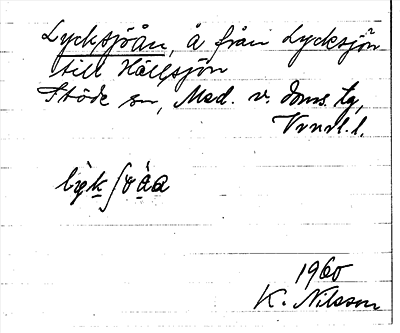 Lycksjöån, å från Lycksjön
till Hällsjön
Stöde sn, Med. v. doms. tg,
Vnrl. l.
1960
K. Nilsson